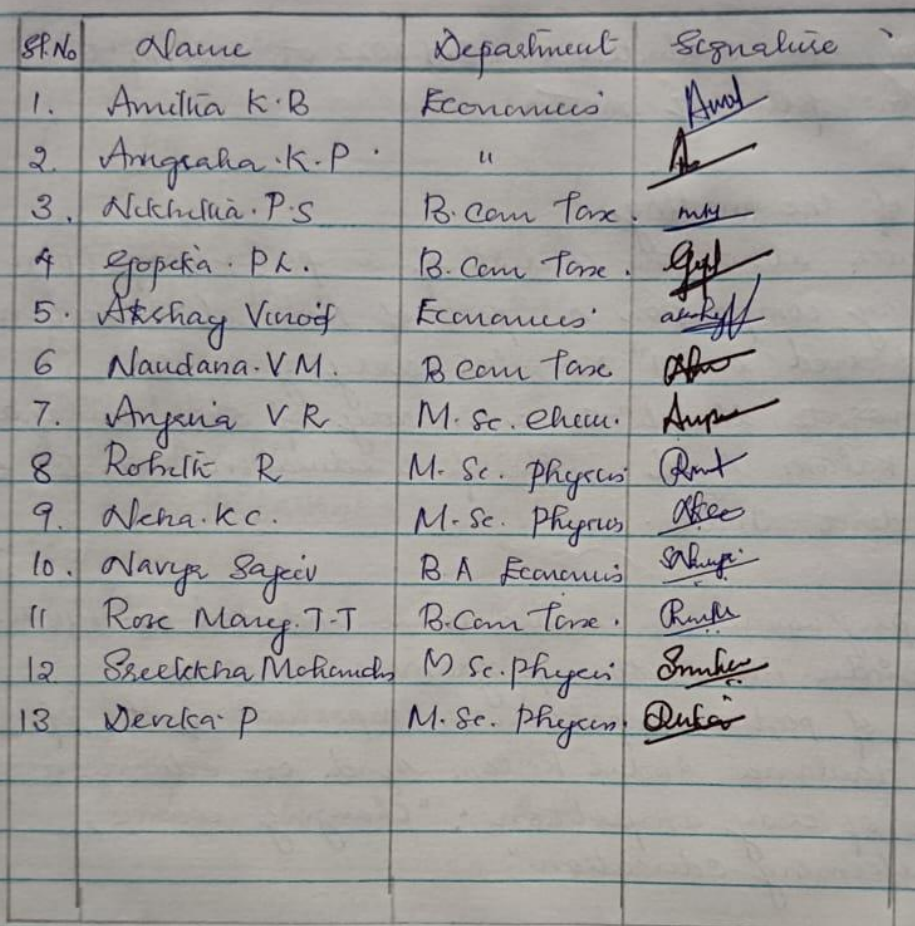 Sl.No Name Department Signature
1. Amitha K.B Economics
2. Anugraha.K.P. "
3. Nikhitha.P.S B.Com Taxe.
4 Gopika. P R. B.Com Taxe.
5. Akshay Vinod Economics
6 Nandana.V M. B Com Taxe
7. Anjana V R M.Sc. Chem.
8 Rohith R M.Sc. Physics
9. Neha.K C. M.Sc. Physics
10. Navya Sajeev B A Economics
11 Rose Mary.T.T B.Com Taxe.
12 Sreelekha Mohandas M Sc. Physics
13 Devika P M.Sc. Physics.